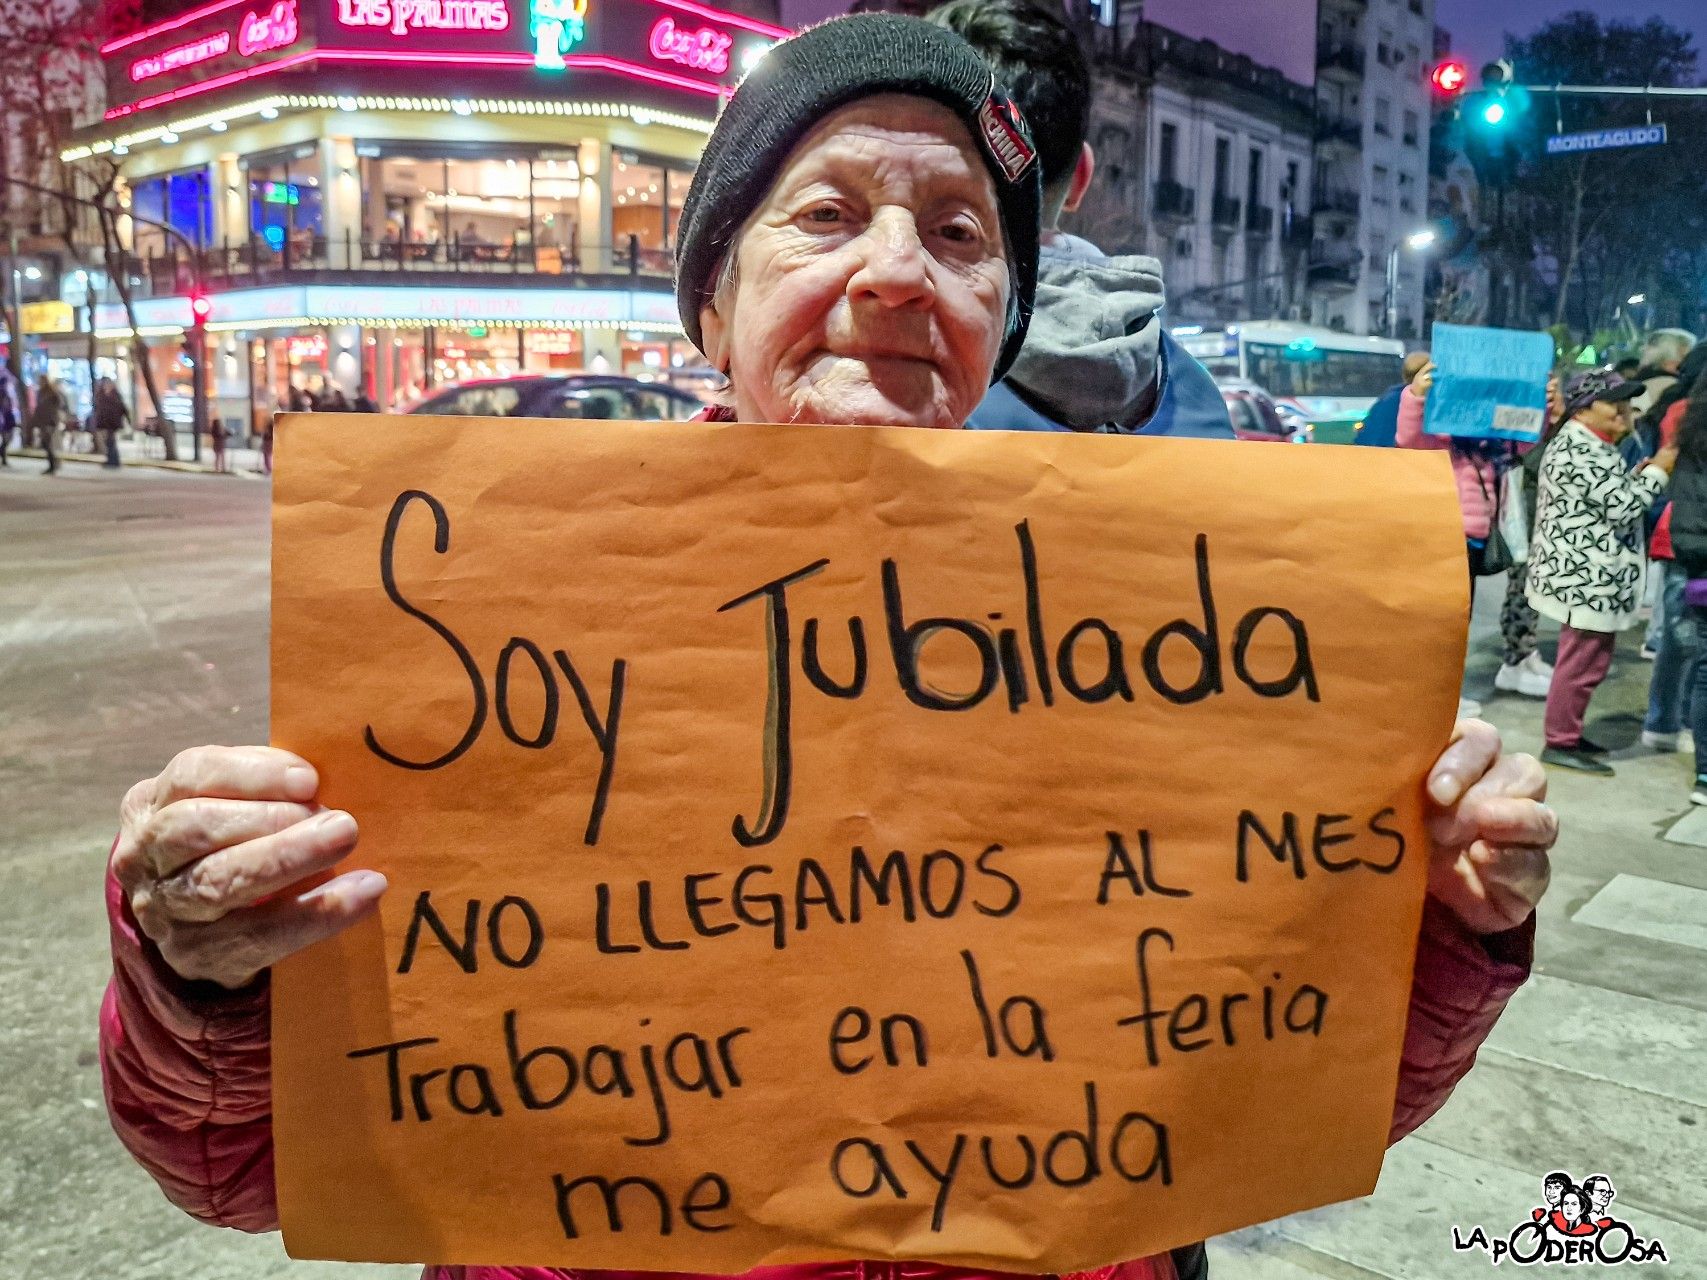 LAS PALMAS
Coca-Cola
Coca-Cola
MONTEAGUDO
LAS PALMAS
Soy Jubilada
NO LLEGAMOS AL MES
Trabajar en la feria
me ayuda
LA PODEROSA